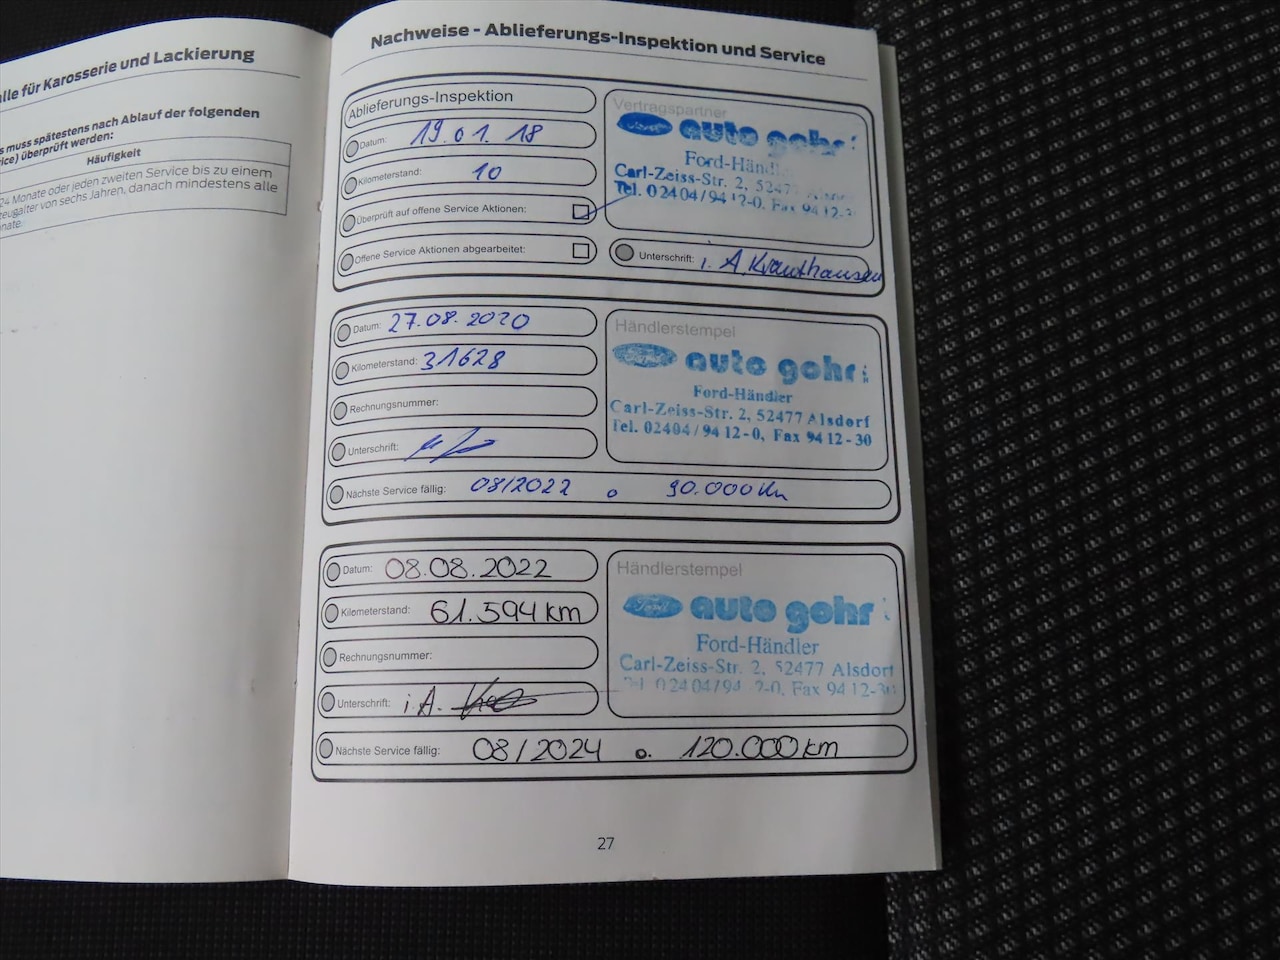 alle für Karosserie und Lackierung
s muss spätestens nach Ablauf der folgenden
ice) überprüft werden:
Häufigkeit
24 Monate oder jeden zweiten Service bis zu einem
zeugalter von sechs Jahren, danach mindestens alle
onate.
Nachweise - Ablieferungs-Inspektion und Service
Ablieferungs-Inspektion
Datum: 19.01.18
Kilometerstand: 10
Überprüft auf offene Service Aktionen:
Offene Service Aktionen abgearbeitet:
Vertragspartner
auto gohr
Ford-Händl
Carl-Zeiss-Str. 2, 52477
Tel. 02404/94 12-0, Fax 94 12-3
Unterschrift: i. A. Krauthausen
Datum: 27.08.2020
Kilometerstand: 31628
Rechnungsnummer:
Unterschrift:
Nächste Service fällig: 08/2022 o 90.000 km
Händlerstempel
Ford auto gohr
Ford-Händler
Carl-Zeiss-Str. 2, 52477 Alsdorf
Tel. 02404/94 12-0, Fax 94 12-30
Datum: 08.08.2022
Kilometerstand: 61.594 km
Rechnungsnummer:
Unterschrift: i.A.
Nächste Service fällig: 08/2024 o. 120.000 km
Händlerstempel
Ford auto gohr
Ford-Händler
Carl-Zeiss-Str. 2, 52477 Alsdorf
02404/94 2-0, Fax 94 12-30
27